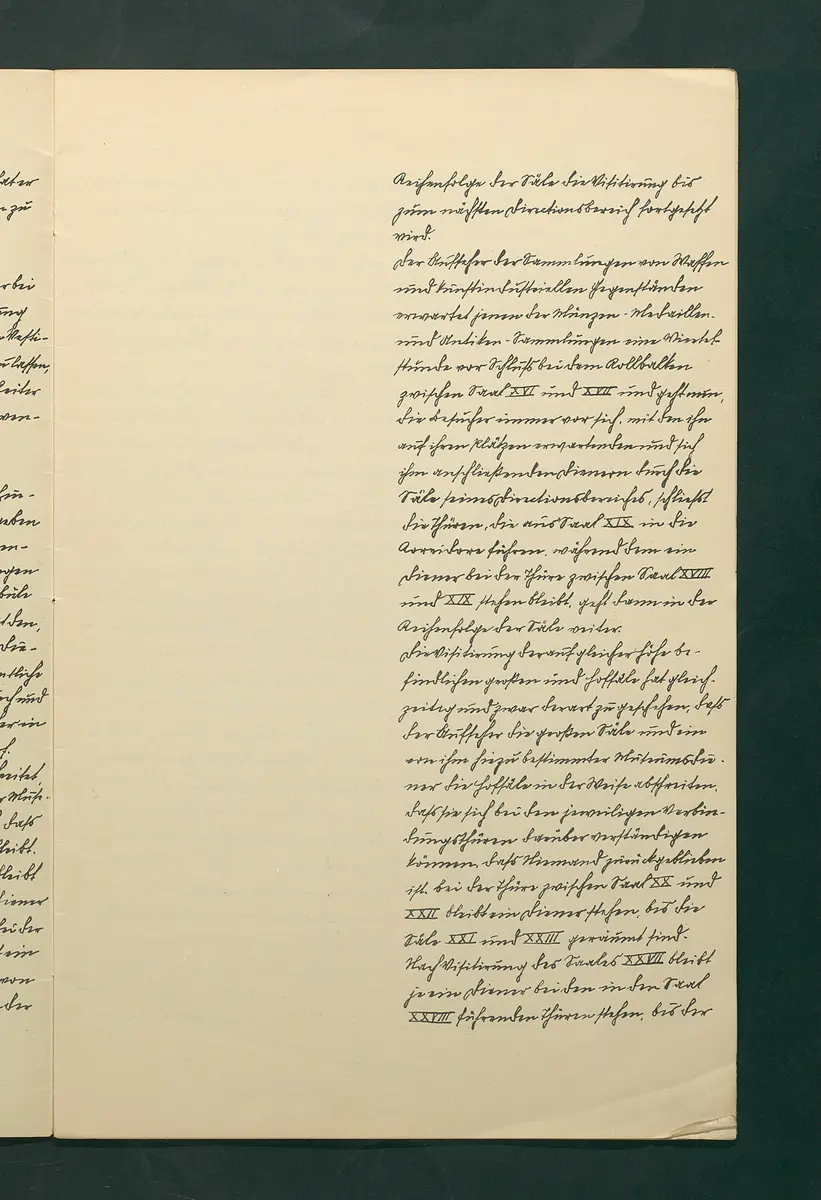 ater
n zu
rbei
ung
Vesti-
u lassen,
leiter
wen-
hin-
geben
en-
ngen
bule
t den,
Die-
ntliche
och und
er in
f.
breitet,
r Muse-
dass
bleibt.
bleibt
Diener
bei der
t ein
von
der
Reihenfolge der Säle die Visitirung bis
zum nächsten Directionsbereich fortgesetzt
wird.
Der Aufseher der Sammlungen von Waffen
und kunstindustriellen Gegenständen
erwartet jenen der Münzen-Medaillen-
und Antiken-Sammlungen eine Viertel-
stunde vor Schluß bei dem Rollbalken
zwischen Saal XVI und XVII und geht nun,
die Besucher immer vor sich, mit den ihn
auf ihren Plätzen erwartenden und sich
ihm anschließenden Dienern durch die
Säle seines Directionsbereiches, schliesst
die Thüren, die aus Saal XIX in die
Corridore führen, während dem ein
Diener bei der Thüre zwischen Saal XVIII
und XIX stehen bleibt, geht dann in der
Reihenfolge der Säle weiter.
Die Visitirung der auf gleicher Höhe be-
findlichen großen und Hofsäle hat gleich-
zeitig und zwar derart zu geschehen, dass
der Aufseher die großen Säle und ein
von ihm hiezu bestimmter Museumsdie-
ner die Hofsäle in der Weise abschreiten,
dass sie sich bei den jeweiligen Verbin-
dungsthüren darüber verständigen
können, dass Niemand zurückgeblieben
ist. bei der Thüre zwischen Saal XX und
XXII bleibt ein Diener stehen, bis die
Säle XXI und XXIII geräumt sind.
Nach Visitirung des Saales XXVII bleibt
je ein Diener bei den in den Saal
XXVIII führenden Thüren stehen, bis der